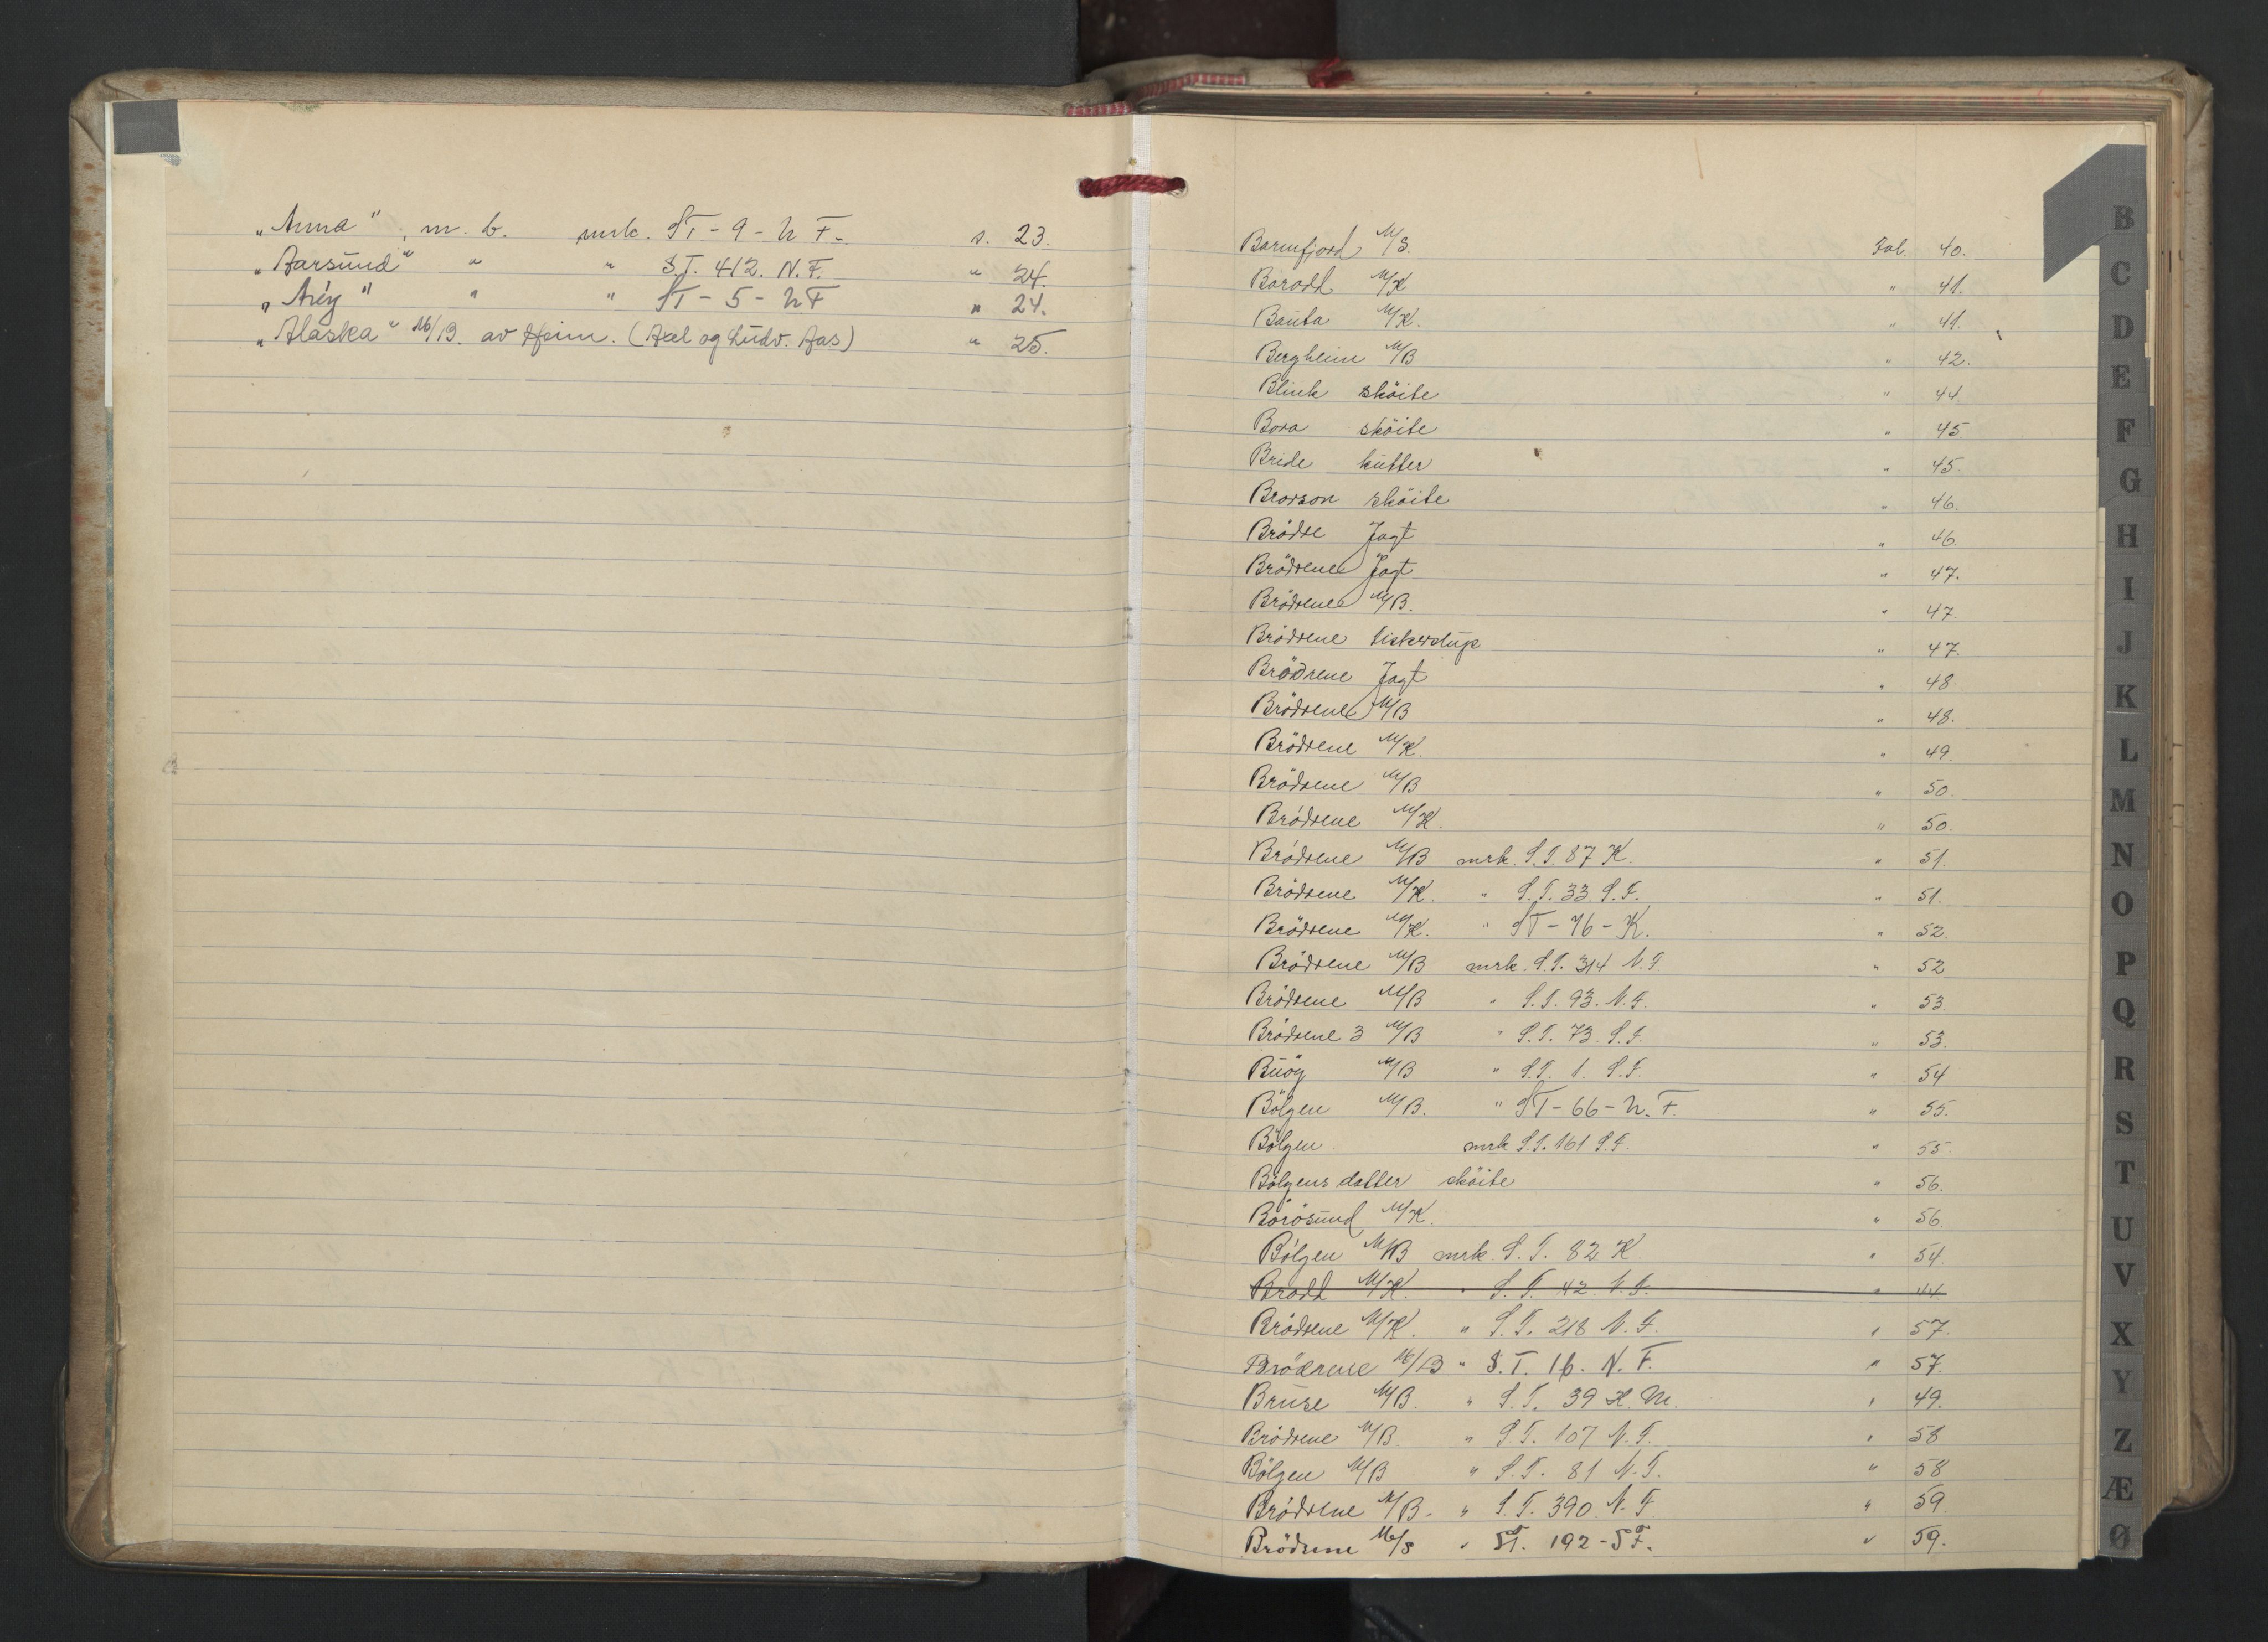 "Anna", m. b. mrk. ST-9-N F. s. 23.
"Aarsund" " " S.T. 412. N.F. " 24.
"Arøy" " " ST-5-NF " 24.
"Alaska" M/B. av Heim. (Axel og Ludv. Aas) " 25.
Barmfjord M/S. Fol. 40.
Barodd M/K " 41.
Bauta M/K. " 41.
Bergheim M/B " 42.
Blink sköite " 44.
Bora sköite " 45
Bride kutter " 45.
Brorson sköite " 46.
Brödre Jagt " 46.
Brödrene Jagt " 47.
Brödrene M/B. " 47.
Brödrene " 47.
Brödrene Jagt " 48.
Brödrene M/B " 48.
Brödrene M/K. " 49
Brödrene M/B " 50.
Brödrene M/K. " 50.
Brödrene M/B mrk. S.T. 87 K. " 51.
Brödrene M/K. " S.T. 33 S.F. " 51.
Brödrene M/K. " ST-76-K. " 52.
Brödrene M/B mrk. S.T. 314 N.F. " 52
Brödrene M/B " S.T. 93. N.F. " 53
Brödrene 3 M/B " S.T. 73. S.F. " 53.
Buöy M/B " S.T. 1. S.F. " 54
Bölgen M/B. " ST-66-N.F. " 55.
Bölgen mrk S.T. 161 S.F. " 55.
Bölgens datter sköite " 56.
Börösund M/K. " 56.
Bölgen M/B mrk. S.T. 82 K " 54.
Brodd M/K. " S.T. 42 N.F. " 44
Brödrene M/K. " S.T. 218 N.F. " 57.
Brödrene M/B " S.T. 16. N.F. " 57.
Bruse M/B. " S.T. 39 H.M. " 49.
Brödrene M/B. " S.T. 107 N.F. " 58
Bölgen M/B " S.T. 81 N.F. " 58
Brödrene M/B. " S.T. 390. N.F " 59
Brödrene M/S " ST. 192-SF. " 59.
B
C
D
E
F
G
H
I
J
K
L
M
N
O
P
Q
R
S
T
U
V
X
Y
Z
Æ
Ø